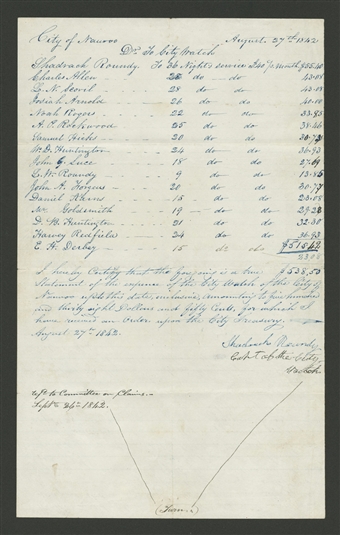 City of Nauvoo August 27th 1842
Dr. To City Watch
Shadrach Roundy. To 36 Night's service @ $40 pr. Month $55.40
Charles Allen 28 do do 43.08
L. N. Scovil 28 do do 43.08
Josiah Arnold 26 do do 40.00
Noah Rogers 22 do do 33.83
A. P. Rockwood 25 do do 38.46
Samuel Hicks 20 do do 30.77
W. D. Huntington 24 do do 36.93
John G. Luce 18 do do 27.69
L. W. Roundy 9 do do 13.85
John A. Forgeus 20 do do 30.77
Daniel Carns 15 do do 23.08
Mr. Goldsmith 19 do do 29.23
D. B. Huntington 21 do do 32.30
Harvey Redfield 24 do do 36.93
$515.42
E. H. Derbey 15 do do 23.08
$538.50
I hereby Certify that the foregoing is a true
Statement of the expense of the City Watch of the City of
Nauvoo up to this date, inclusive, amounting to five hundred
and thirty eight Dollars and fifty Cents, for which I
have an order upon the City Treasury.
August 27th 1842.
Shadrach Roundy
Capt of the City
Watch
Refd to Committee on Claims.
Septr 26th 1842.